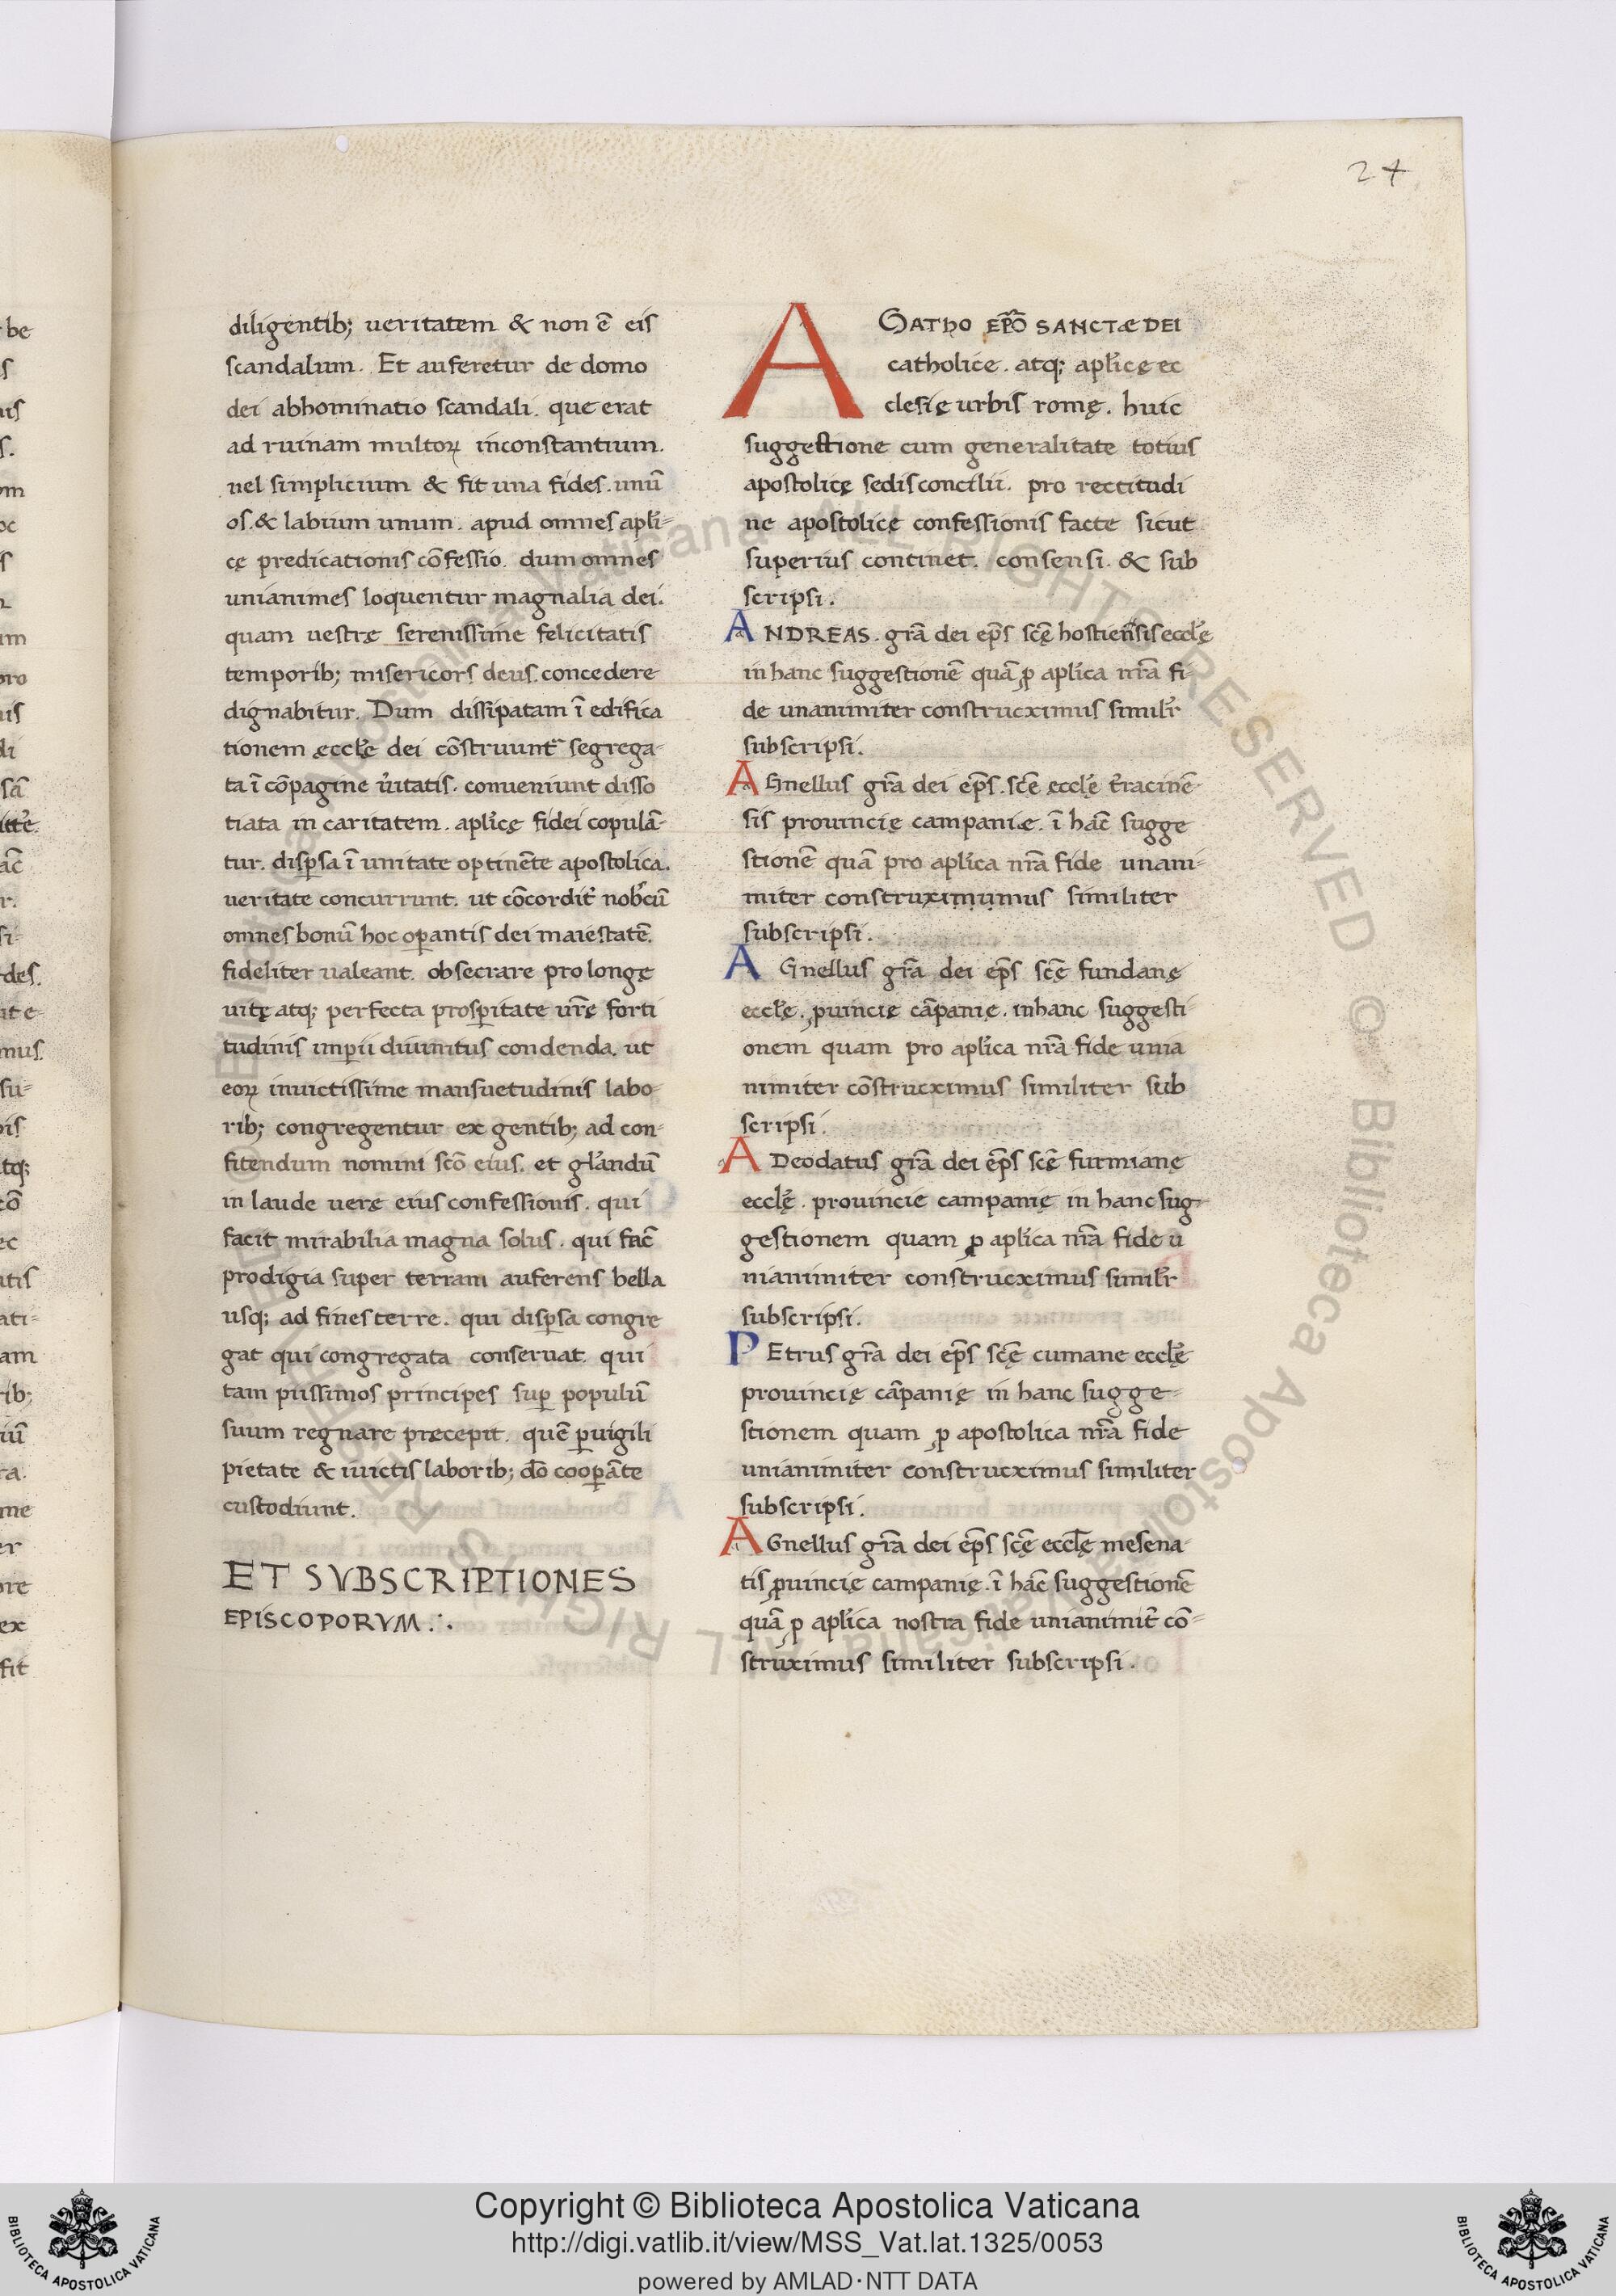 24
diligentib; ueritatem & non ē eis
scandalum. Et auferetur de domo
dei abhominatio scandali. que erat
ad ruinam multoꝝ inconstantium.
uel simplicium & fit una fides. unū
os. & labium unum. apud omnes apli-
cę predicationis cōfessio. dum omnes
unianimes loquentur magnalia dei.
quam uestrę serenissime felicitatis
temporib; misericors deus. concedere
dignabitur. Dum dissipatam ī edifica
tionem ęcclę dei cōstruunt segrega-
ta ī cōpagine ůitatis. conueniunt disso
tiata in caritatem. aplicę fidei copulā-
tur. disꝑsa ī unitate optinēte apostolica.
ueritate concurrunt. ut cōcordit nob cū
omnes bonū hoc oꝑantis dei maiestatē.
fideliter ualeant. obsecrare pro longę
uitę atq; perfecta prosꝑitate ur̄ę forti
tudinis imꝑii diuinitus condenda. ut
eoꝝ inuictissime mansuetudinis labo-
rib; congregentur ex gentib; ad con-
fitendum nomini scō eius. et glandū
in laude uerę eius confessionis. qui
facit mirabilia magna solus. qui fac̄
prodigia super terram auferens bella
usq; ad fines terre. qui disꝑsa congre
gat qui congregata conseruat. qui
tam piissimos principes suꝑ populū
suum regnare pręcepit. quē ꝑuigili
pietate & iuictis laborib; dō cooꝑāte
custodiunt.
ET SVBSCRIPTIONES
EPISCOPORVM.:.
AGATHO EP̄O SANCTÆ DEI
catholice. atq; aplicę ec
clesię urbis romę. huic
suggestione cum generalitate totius
apostolicę sedis concilii. pro rectitudi
ne apostolicę confessionis facte sicut
superius continet. consensi. & sub
scripsi.
ANDREAS. grā dei ep̄s scę hostiensis ecclę
in hanc suggestionē quā ꝓ aplica nrā fi
de unanimiter construcximus similr
subscripsi.
AGnellus grā dei ep̄s. scē ęcclę tracinē
sis prouincię campanię. ī hāc sugge
stionē quā pro aplica nrā fide unani-
miter construximumus similiter
subscripsi.
AGnellus grā dei ep̄s scę fundanę
ecclę. ꝓuincię cāpanię. in hanc suggesti
onem quam pro aplica nrā fide unia
nimiter cōstrucximus similiter sub
scripsi.
A Deodatus grā dei ep̄s scę furmianę
ecclę. prouincie campanię in hanc sug-
gestionem quam ꝓ aplica nrā fide u
nianimiter construcximus similr
subscripsi.
PEtrus grā dei ep̄s scę cumane ecclę
prouincię cāpanię in hanc sugge-
stionem quam ꝓ apostolica nrā fide
unianimiter construcximus similiter
subscripsi.
AGnellus grā dei ep̄s scę ecclę mesena
tis ꝓuincię campanię. ī hāc suggestionē
quā ꝓ aplica nostra fide unianimit cō-
struximus similiter subscripsi.
© Biblioteca Apostolica Vaticana ALL RIGHTS RESERVED © Biblioteca Apostolica Vaticana ALL RIGHTS RESERVED
Copyright © Biblioteca Apostolica Vaticana
http://digi.vatlib.it/view/MSS_Vat.lat.1325/0053
powered by AMLAD·NTT DATA
BIBLIOTECA APOSTOLICA VATICANA
BIBLIOTECA APOSTOLICA VATICANA